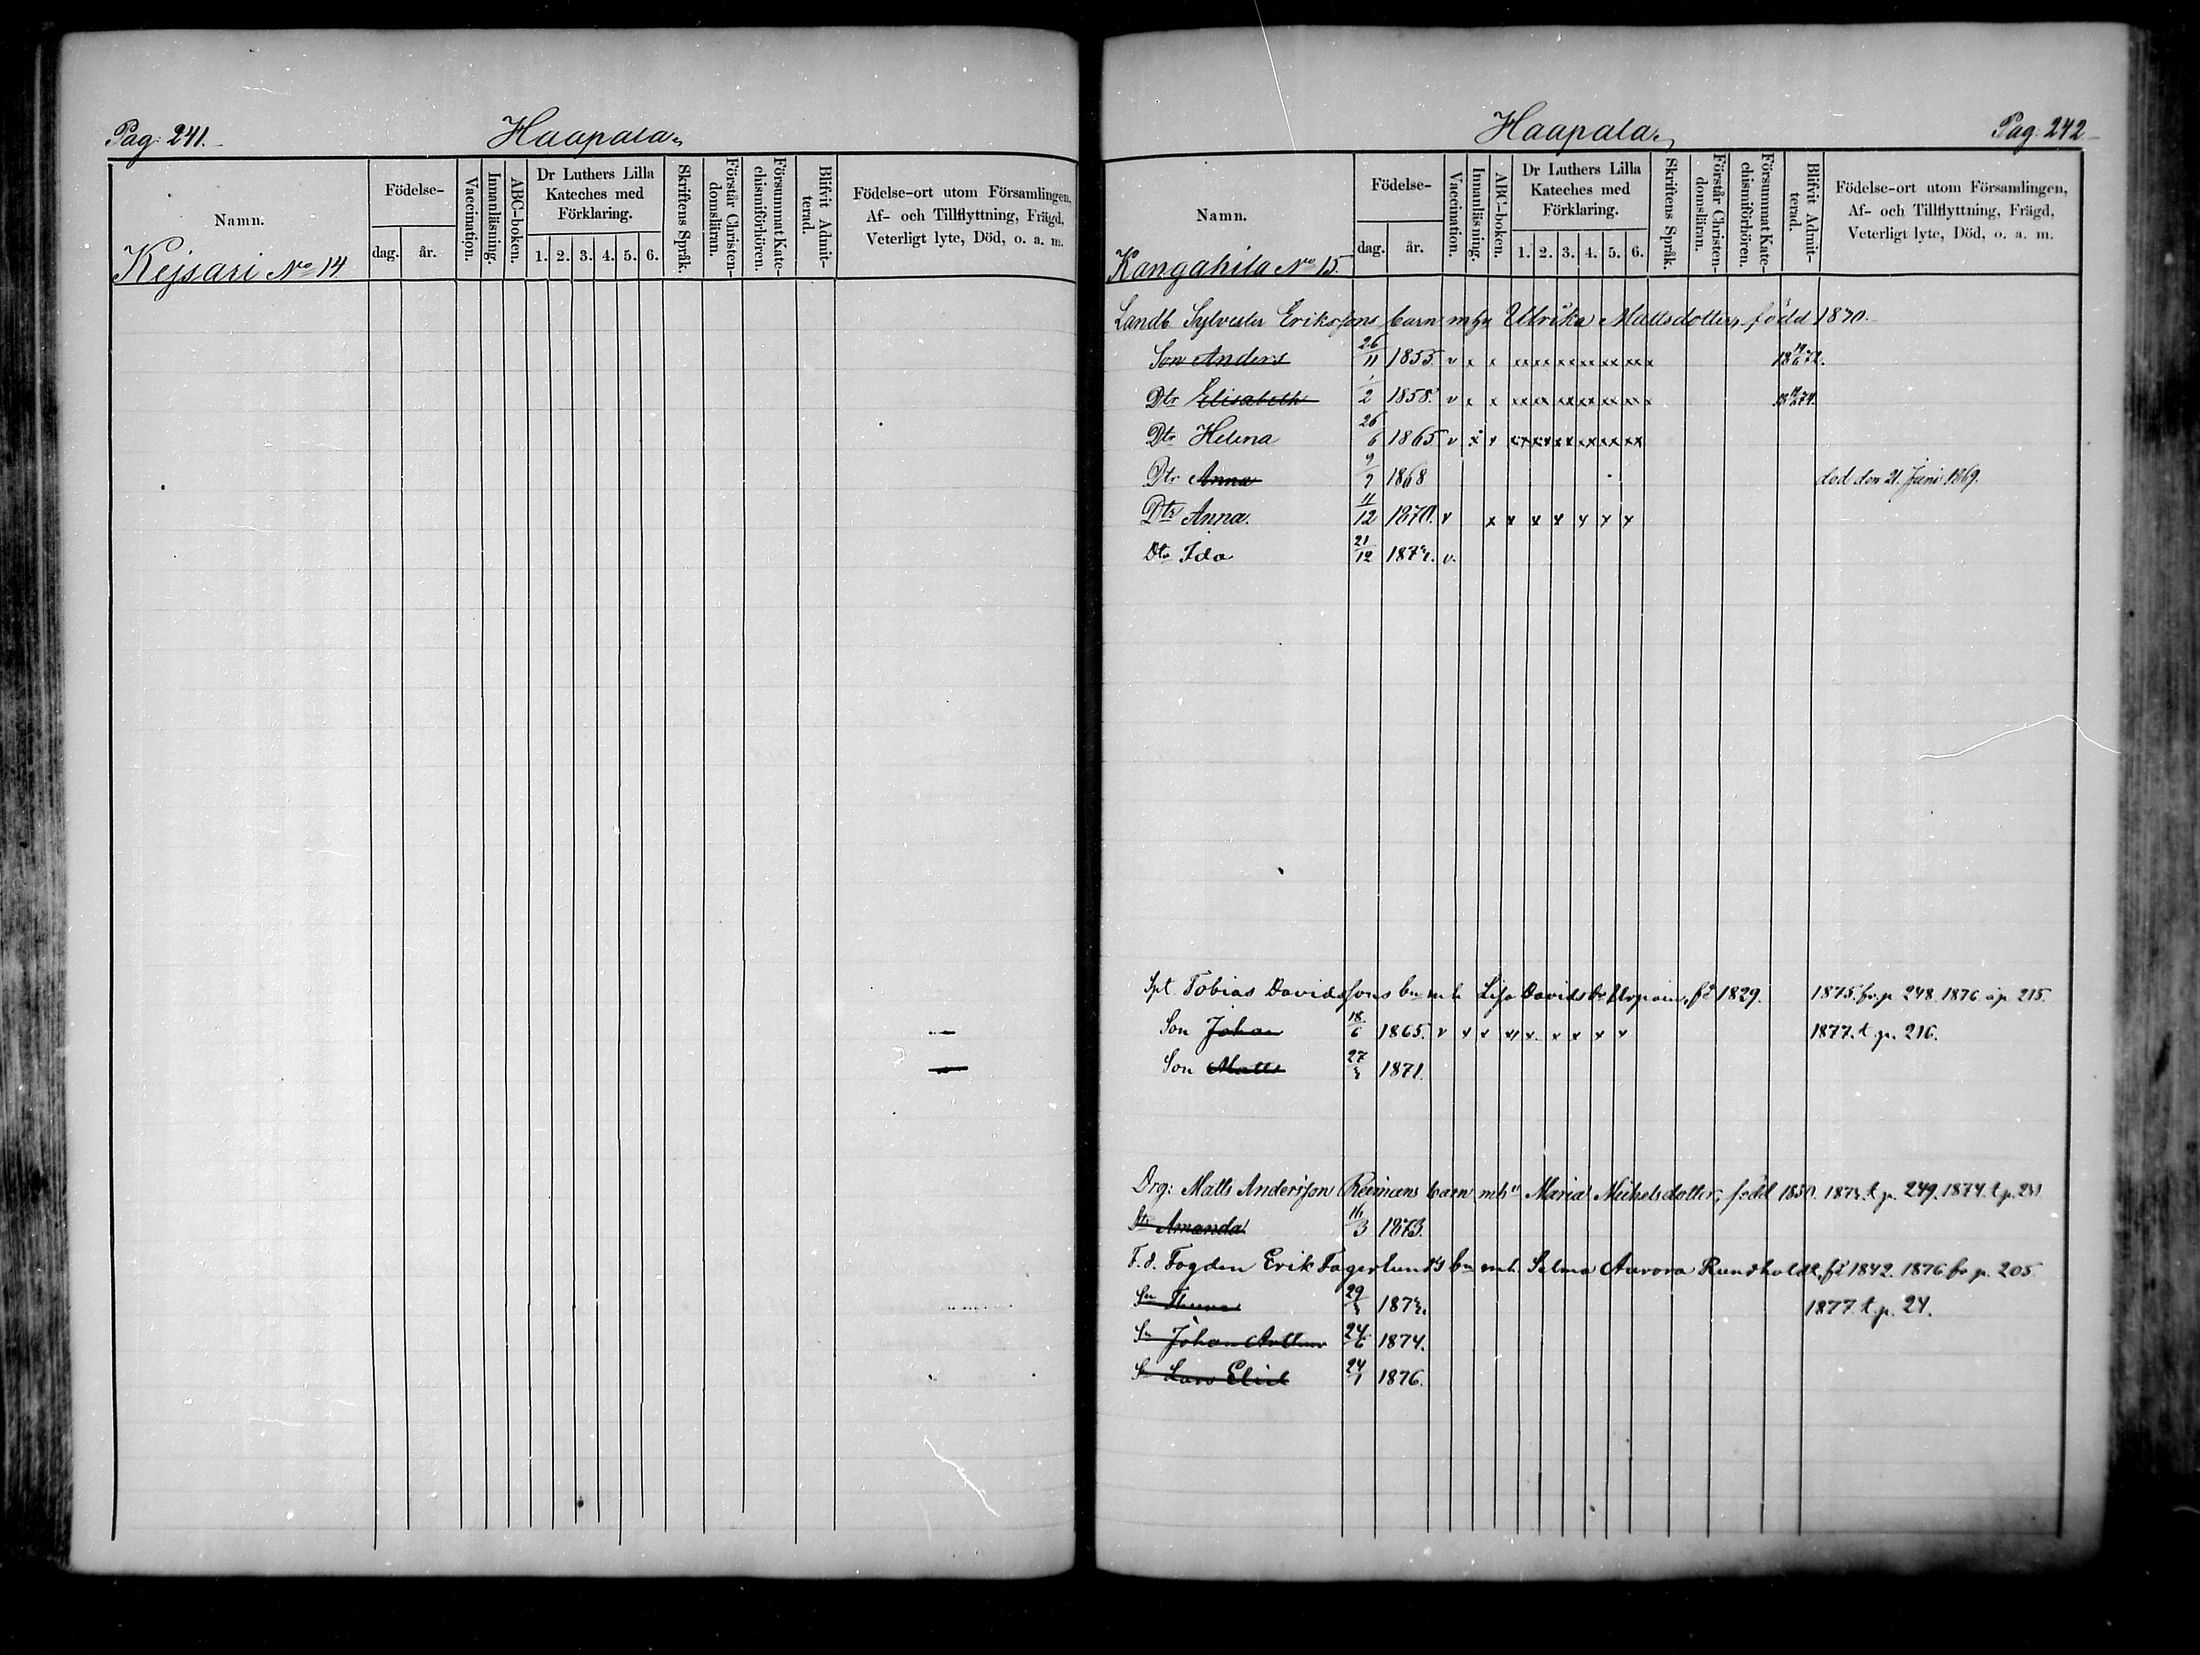 Pag. 241.
Haapala
Namn.
Födelse-
dag.
år.
Vaccination.
Innanläsning.
ABC-boken.
Dr Luthers Lilla Kateches med Förklaring.
1. 2. 3. 4. 5. 6.
Skriftens Språk.
Förstår Christendomsläran.
Försummat Katechismiförhören.
Blifvit Admitterad.
Födelse-ort utom Församlingen,
Af- och Tillflyttning, Frägd,
Veterligt lyte, Död, o. a. m.
Kejsari No 14
Haapala
Pag. 242
Namn.
Födelse-
dag.
år.
Vaccination.
Innanläsning.
ABC-boken.
Dr Luthers Lilla Kateches med Förklaring.
1. 2. 3. 4. 5. 6.
Skriftens Språk.
Förstår Christendomsläran.
Försummat Katechismiförhören.
Blifvit Admitterad.
Födelse-ort utom Församlingen,
Af- och Tillflyttning, Frägd,
Veterligt lyte, Död, o. a. m.
Kangahila No 15.
Landb. Sylvester Erikssons barn mhu Ulrika Mattsdotter, född 1830.
Son Anders 26/11 1855. v x x xx xx xx xx xx xx
Dtr Elisabeth 1/2 1858. v x x xx xx xx xx xx xx
Dtr Helena 26/6 1865 v x x xx xx xx xx xx xx
Dtr Anna 9/7 1868 död den 21. Juni 1869.
Dtr Anna. 11/12 1870. v x x x x x x x
Dtr Ida 21/12 187 v.
Spt. Tobias Davidssons bn mh. Lisa Davidsdr fd 1829. 1875. fr. p. 248. 1876 å p. 215.
Son Johan 18/6 1865. v x x x x x x x x 1877. t. p. 216.
Son Matts 27 1871.
Drg: Matts Andersson Reimans barn mhu Maria Michelsdotter, född 1850. t. p. 249. 1874. t. p.
Dtr Amanda 16/3 1873.
F. d. Fogden Erik Fagerlunds bn mh. Selma Aurora Rundholdt, fd 1842. 1876 fr. p. 205.
Sn 29 187 1877. t. p. 24.
Sn Johan Arthur 24/6 1874.
Sn Lars Elied 24/1 1876.